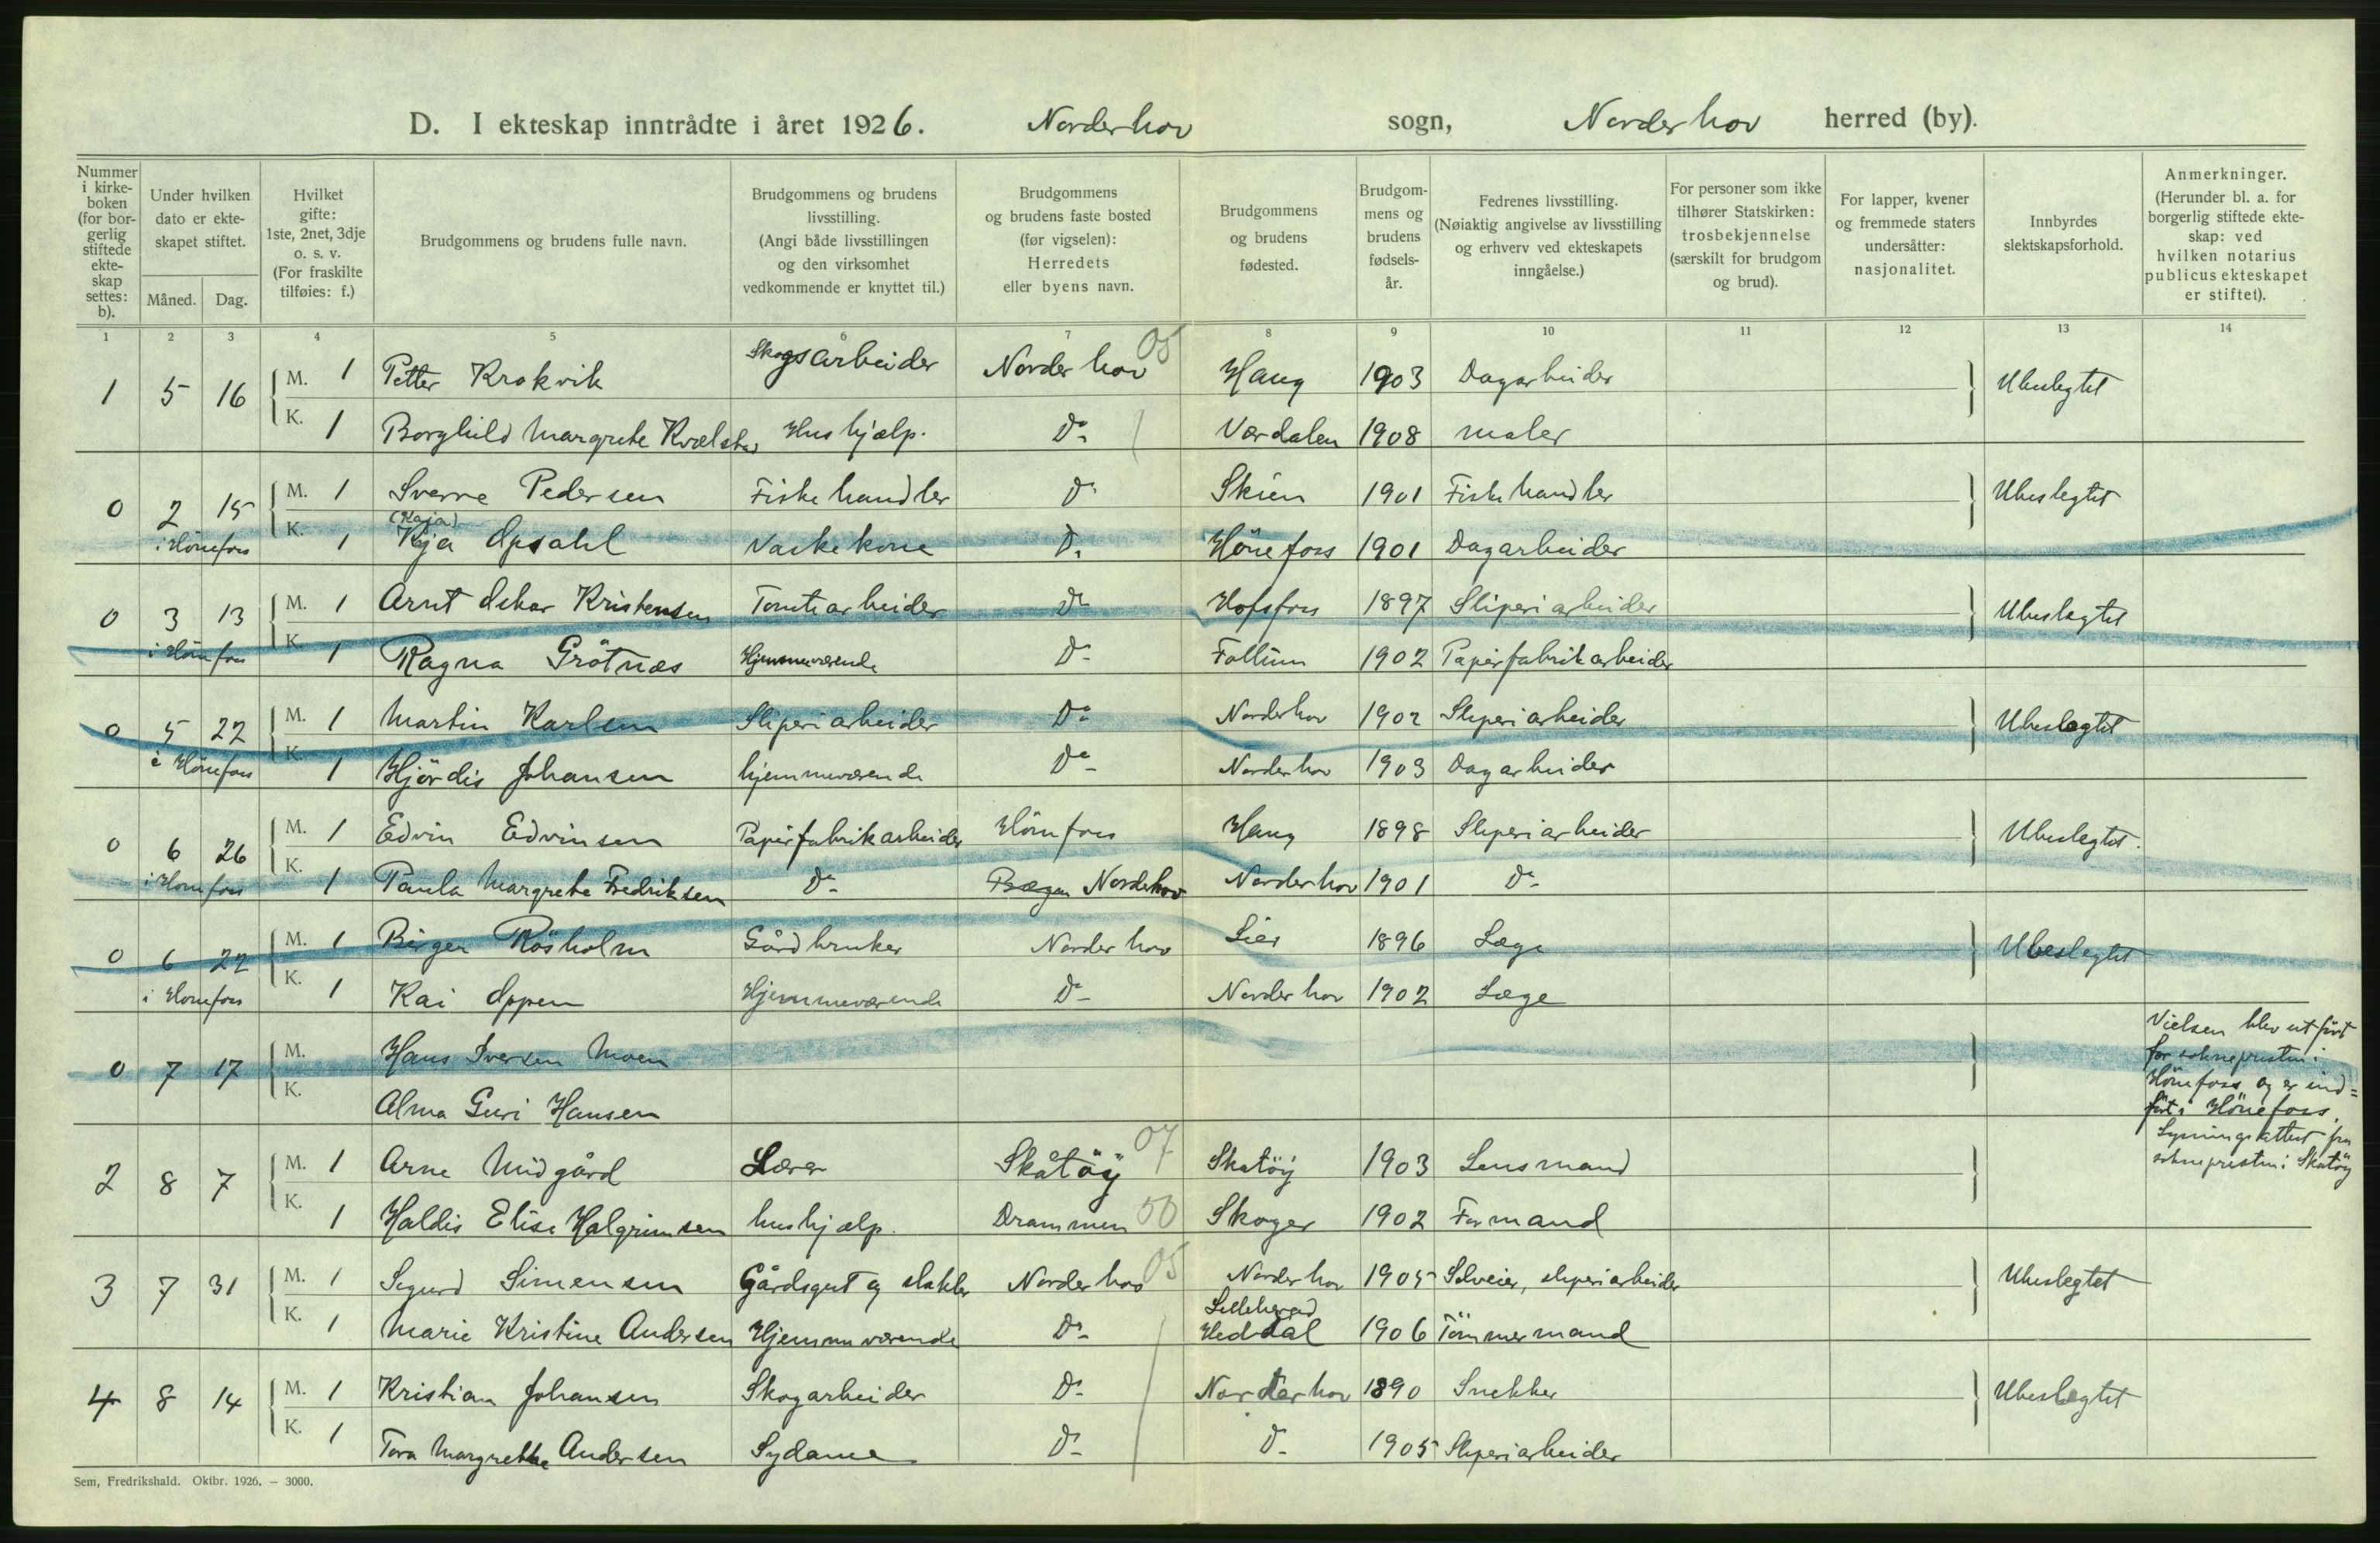 D. I ekteskap inntrådte i året 1926. Norderhov sogn, Norderhov herred (by).
Nummer i kirke-boken (for bor-gerlig stiftede ekte-skap settes: b).
Under hvilken dato er ekte-skapet stiftet.
Måned. Dag.
Hvilket gifte: 1ste, 2net, 3dje o. s. v. (For fraskilte tilføies: f.)
Brudgommens og brudens fulle navn.
Brudgommens og brudens livsstilling. (Angi både livsstillingen og den virksomhet vedkommende er knyttet til.)
Brudgommens og brudens faste bosted (før vigselen): Herredets eller byens navn.
Brudgommens og brudens fødested.
Brudgom-mens og brudens fødsels-år.
Fedrenes livsstilling. (Nøiaktig angivelse av livsstilling og erhverv ved ekteskapets inngåelse.)
For personer som ikke tilhører Statskirken: trosbekjennelse (særskilt for brudgom og brud).
For lapper, kvener og fremmede staters undersåtter: nasjonalitet.
Innbyrdes slektskapsforhold.
Anmerkninger. (Herunder bl. a. for borgerlig stiftede ekte-skap: ved hvilken notarius publicus ekteskapet er stiftet).
1 2 3 4 5 6 7 8 9 10 11 12 13 14
05
1 5 16 M. 1 Petter Krokvik Skogsarbeider Norderhov Haug 1903 Dagarbeider Ubeslegtet
K. 1 Borghild Margrete Hushjælp. Do Værdalen 1908 maler
0 2 15 M. 1 Sverre Pedersen Fiskehandler Do Skien 1901 Fiskehandler Ubeslegtet
(Kaja)
i Hönefoss K. 1 Kaja Opsahl Vaskekone Do Hönefoss 1901 Dagarbeider
0 3 13 M. 1 Arnt Oskar Kristensen Tomtearbeider Do Hofsfoss 1897 Sliperiarbeider Ubeslegtet
i Hönefoss K. 1 Ragna Grötnæs Hjemmeværende Do Follum 1902 Papirfabrikarbeider
0 5 22 M. 1 Martin Karlsen Sliperiarbeider Do Norderhov 1902 Sliperiarbeider Ubeslegtet
i Hönefoss K. 1 Hjördis Johansen hjemmeværende Do Norderhov 1903 Dagarbeider
0 6 26 M. 1 Edvin Edvinsen Papirfabrikarbeider Hönefoss Haug 1898 Sliperiarbeider Ubeslegtet.
i Hönefoss K. 1 Paula Margrete Fredriksen Do Norderhov Norderhov 1901 Do
0 6 22 M. 1 Birger Rösholm Gårdbruker Norderhov Lier 1896 Læge Ubeslegtet
i Hönefoss K. 1 Kai Oppen Hjemmeværende Do Norderhov 1902 Læge
0 7 17 M. Hans Iversen Moen
K. Alma Guri Hansen
Vielsen blev utfört
for sokneprestin i
Hönefoss og er ind=
fört i Hönefoss.
07
2 8 7 M. 1 Arne Midgård Lærer Skåtöy Skatöy 1903 Lensmand
Lysningsattest fra
sokneprestin i Skatöy
K. 1 Haldis Elise Halgrimsen hushjælp. Drammen 50 Skoger 1902 Formand
05
3 7 31 M. 1 Sigurd Simensen Gårdsgut og slakter Norderhov Norderhov 1905 Selveier, sliperiarbeider Ubeslegtet
Lilleherad
K. 1 Marie Kristine Andersen Hjemmeværende Do Heddal 1906 Tömmermand
4 8 14 M. 1 Kristian Johansen Skogarbeider Do Norderhov 1890 Snekker Ubeslegtet
K. 1 Tora Margrethe Andersen Sydame Do Do 1905 Sliperiarbeider
Sem, Fredrikshald. Oktbr. 1926. – 3000.